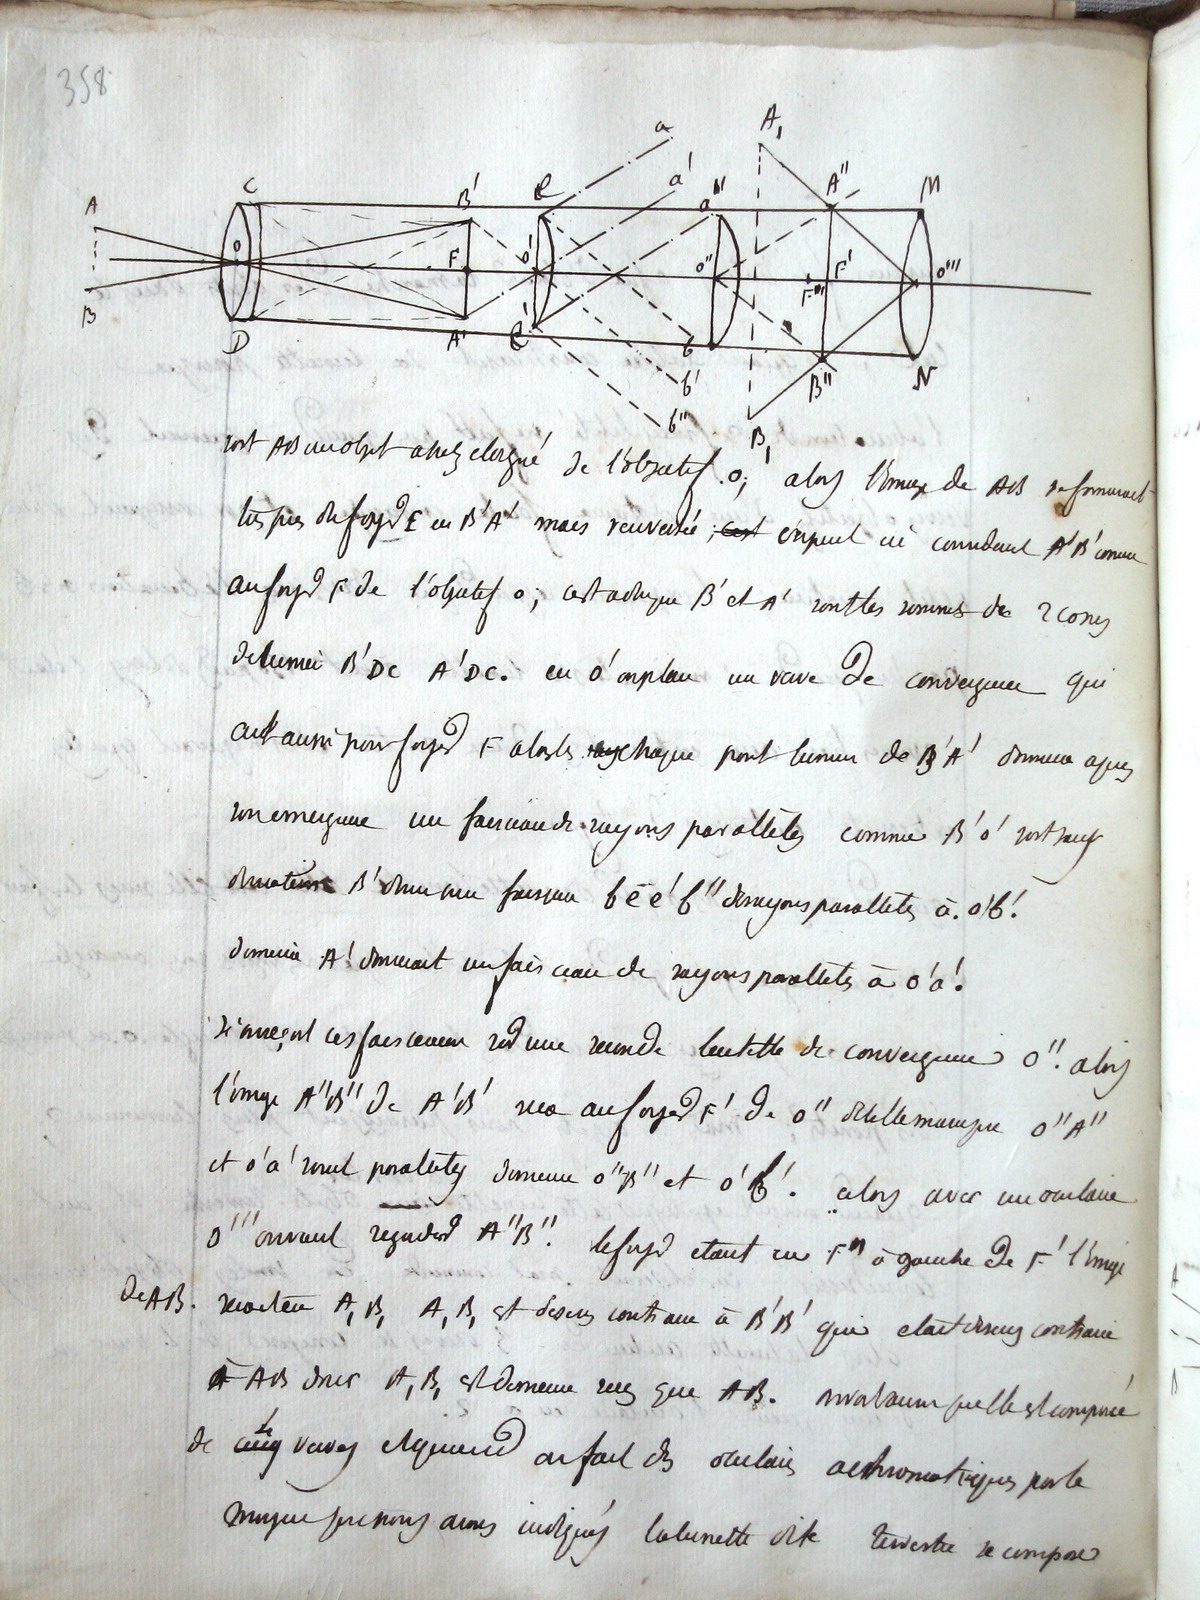 358
a A,
C B' e a' a'' A'' M
A O F b' O'' F' F''' O'''
B D A' e' b b' B'' N
b'' B,
soit AB un objet assez eloigné de l'objectif O; alors l'image de AB se formerait
tres pres du foyer F en B'A' mais renversée; on peut ici considerer A'B' comme
au foyer F de l'objectif O; c'est a dire que B' et A' sont les sommets de 2 cones
de lumiere B'DC A'DC. en O' on place un verre de convergence qui
ait aussi pour foyer F alors chaque point lumineux de B'A' donnera apres
son emergence un faisceau de rayons paralleles comme B'O' sont sans
deviation B' donne un faisceau b e e' b'' de rayons paralleles à O'b'.
de meme A' donnerait un faisceau de rayons paralleles à O'a'.
Si on reçoit ces faisceaux sur une seconde lentille de convergence O''. alors
l'image A''B'' de A'B' sera au foyer F' de O'' de telle maniere que O''A''
et O'a' soient paralleles de meme O''B'' et O'b'. alors avec un oculaire
O''' on peut regarder A''B''. le foyer etant en F''' à gauche de F' l'image
de AB. sera en A,B, A,B, est de sens contraire à B'B' qui etait de sens contraire
à AB donc A,B, est de meme sens que AB. on voit qu'elle est composée
de verres on fait des oculaires achromatiques par le
moyen que nous avons indiqué la lunette dite terrestre se compose